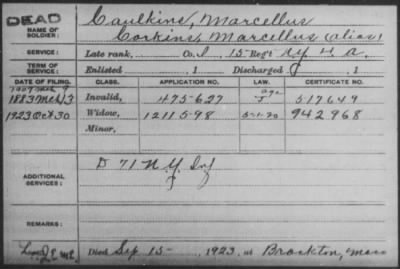 DEAD
NAME OF SOLDIER:
Caulkins, Marcellus
Corkins, Marcellus (alias)
SERVICE: Late rank, Co. I, 15 Reg't N.Y. H. A.
TERM OF SERVICE: Enlisted , 1 Discharged , 1
DATE OF FILING. CLASS. APPLICATION NO. LAW. CERTIFICATE NO.
1883 Mch 3 Invalid, 475-627 age 517649
1923 Oct 30 Widow, 1211598 5-1-20 942968
Minor,
ADDITIONAL SERVICES: D 71 N.Y. Inf
REMARKS:
Died Sep 15 , 1923, at Brockton, Mass